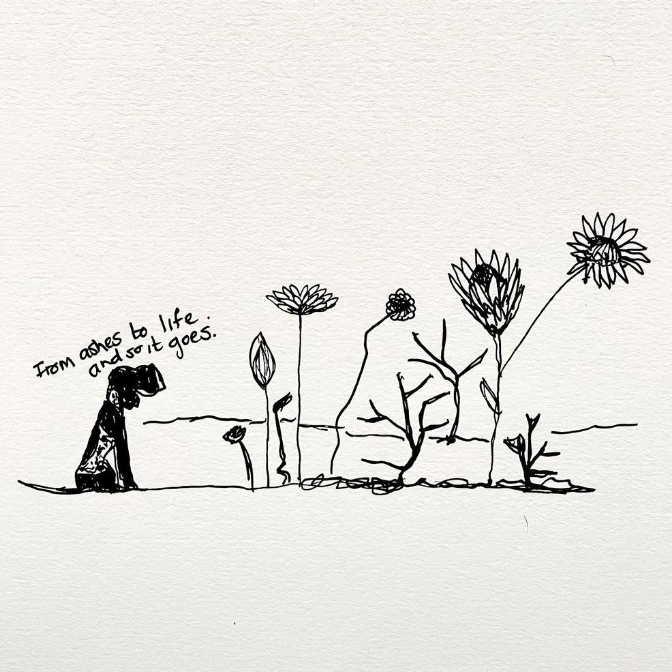 From ashes to life.
and so it goes.